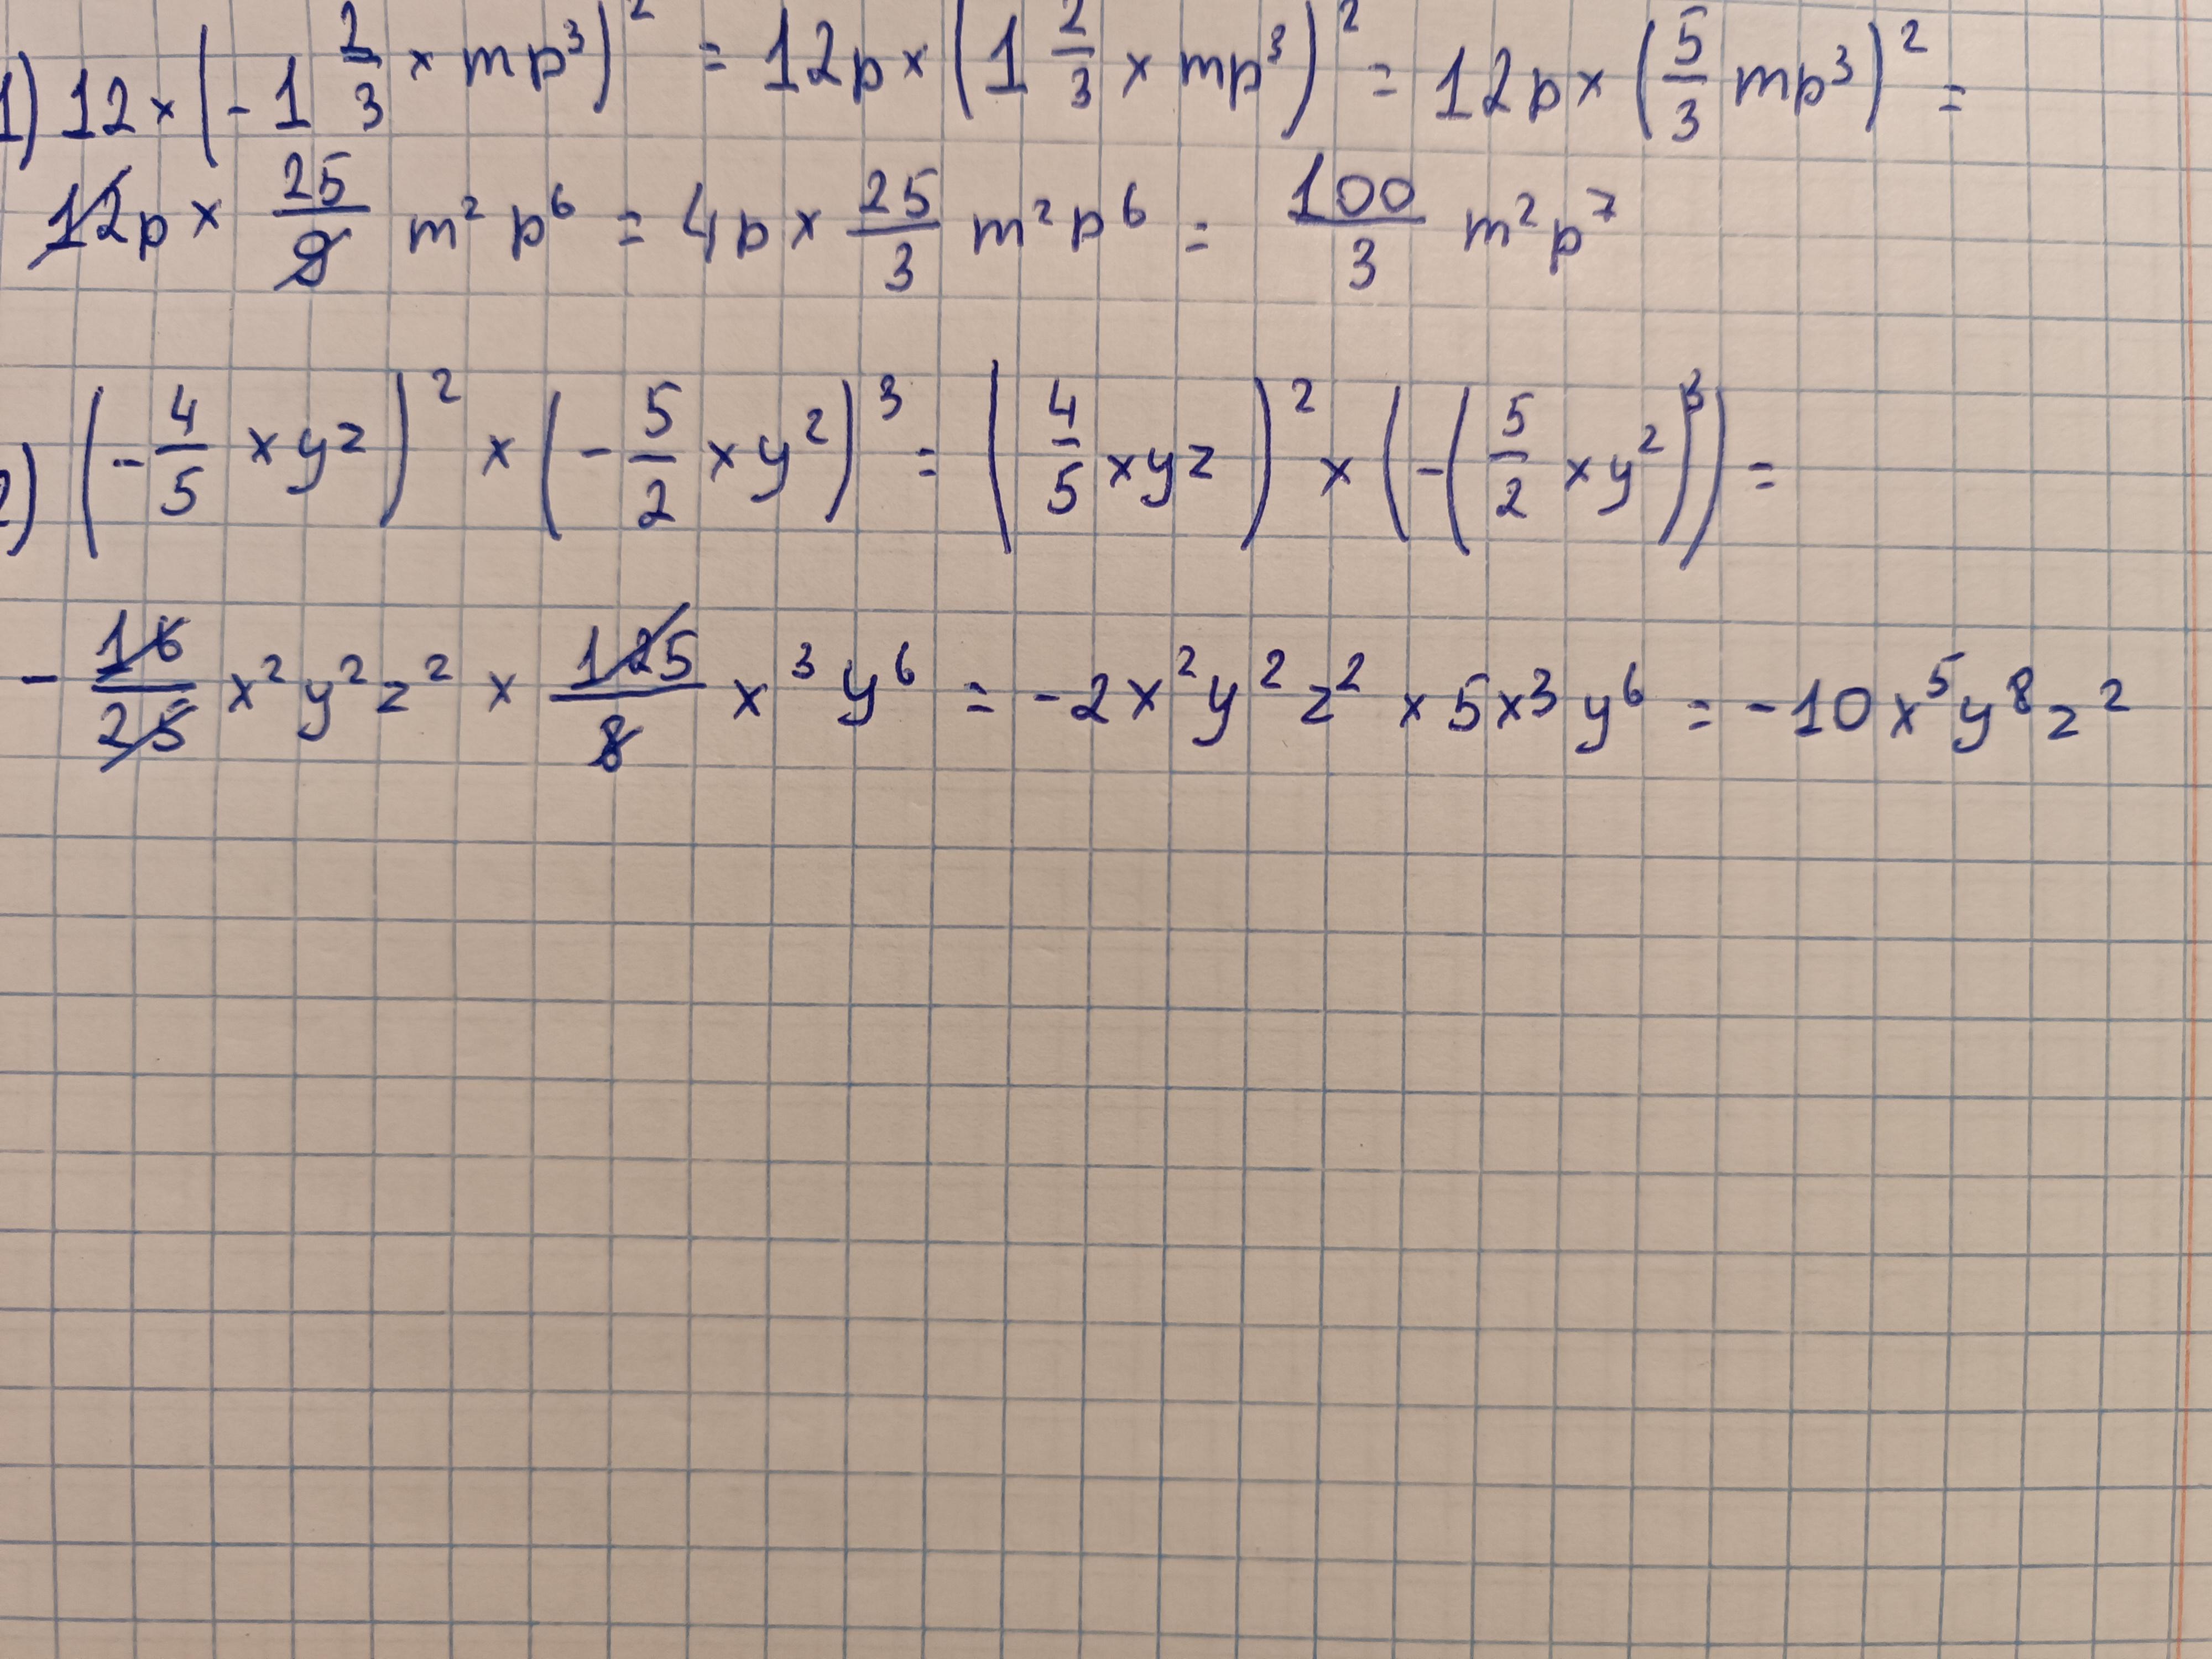 1) 12 × (-1 2/3 × mp³)² = 12p × (1 2/3 × mp³)² = 12p × (5/3 mp³)² =
12p × 25/9 m² p⁶ = 4p × 25/3 m² p⁶ = 100/3 m² p⁷
2) (-4/5 × yz)² × (-5/2 × y²)³ = (4/5 × yz)² × (-(5/2 × y²)³) =
- 16/25 x² y² z² × 125/8 x³ y⁶ = -2x² y² z² × 5x³ y⁶ = -10 x⁵ y⁸ z²